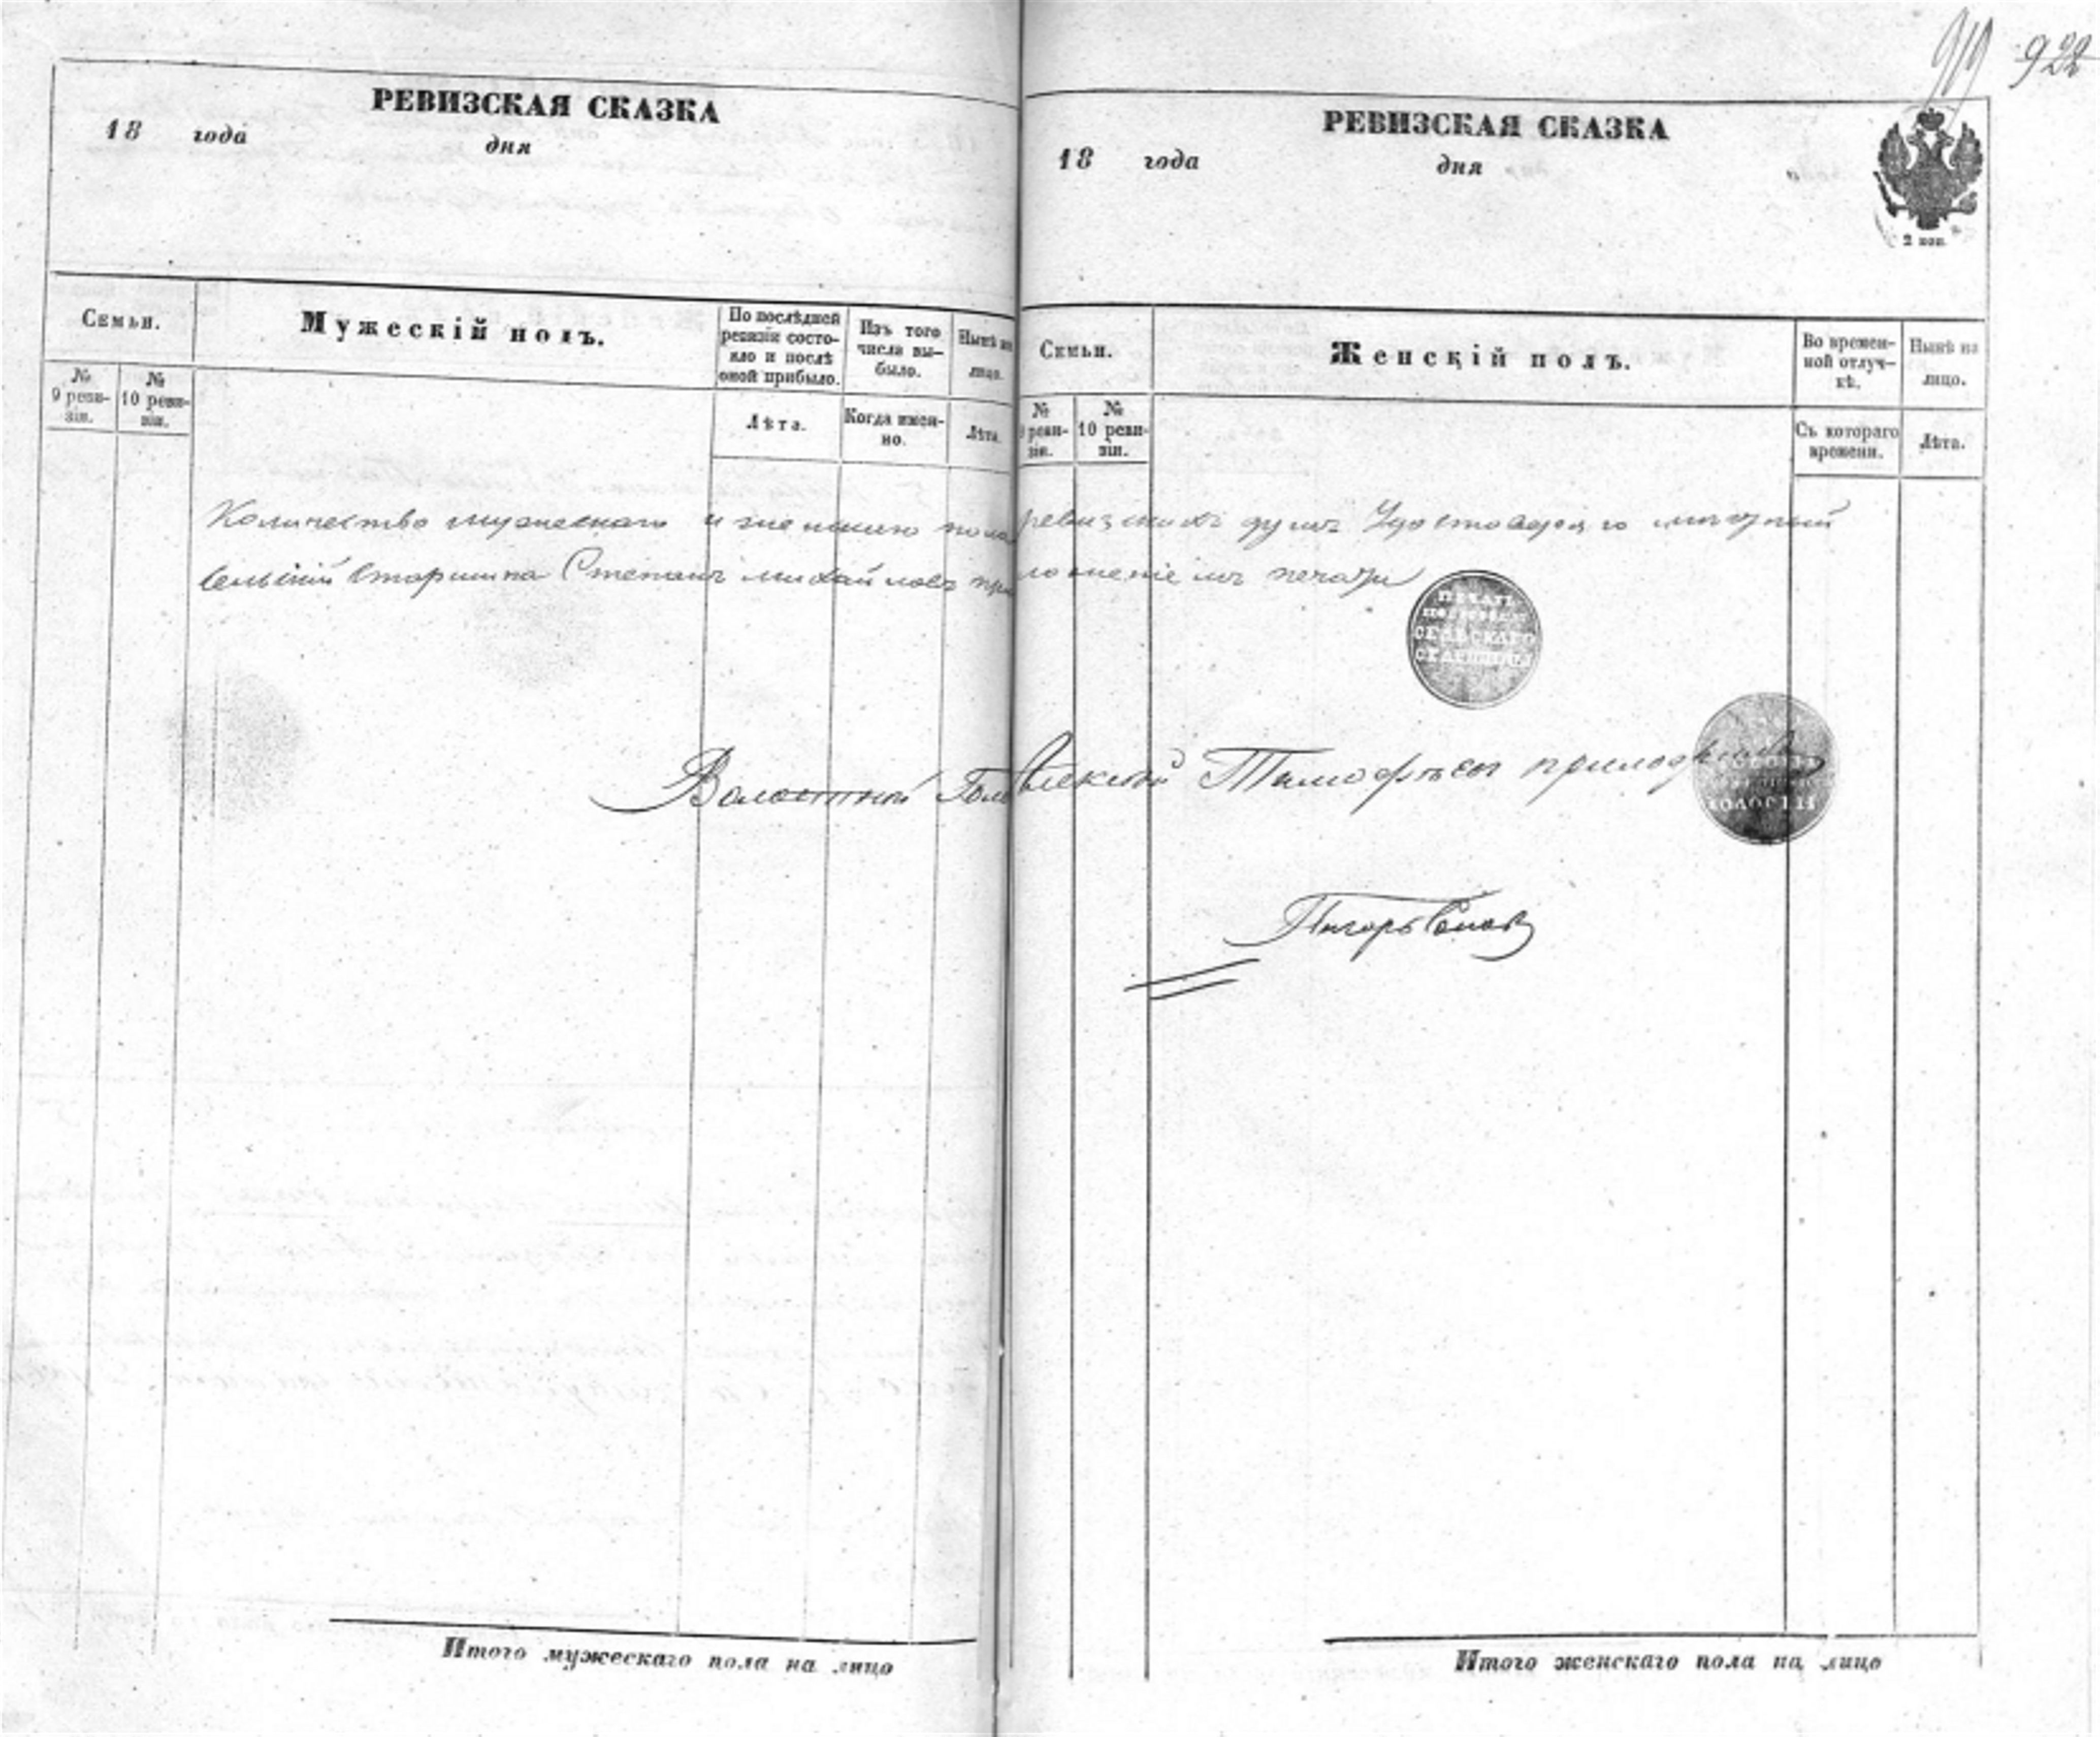 919 922
РЕВИЗСКАЯ СКАЗКА
18 года дня
Семьи.
Мужескій полъ.
По послѣдней ревизіи состояло и послѣ оной прибыло.
Изъ того числа выбыло.
Нынѣ на лицо.
№ 9 ревизіи.
№ 10 ревизіи.
Лѣта.
Когда именно.
Лѣта.
РЕВИЗСКАЯ СКАЗКА
18 года дня
2 коп.
Семьи.
Женскій полъ.
Во временной отлучкѣ.
Нынѣ на лицо.
№ 9 ревизіи.
№ 10 ревизіи.
Съ котораго времени.
Лѣта.
Количество мужескаго и женскаго пола ревизскихъ душъ
сельскій старшина Степанъ Михайловъ приложеніемъ печати
ПЕЧАТЬ
СЕЛЬСКАГО
Волостной Голова Алексей Тимофѣевъ приложилъ
Писарь
Итого мужескаго пола на лицо
Итого женскаго пола на лицо